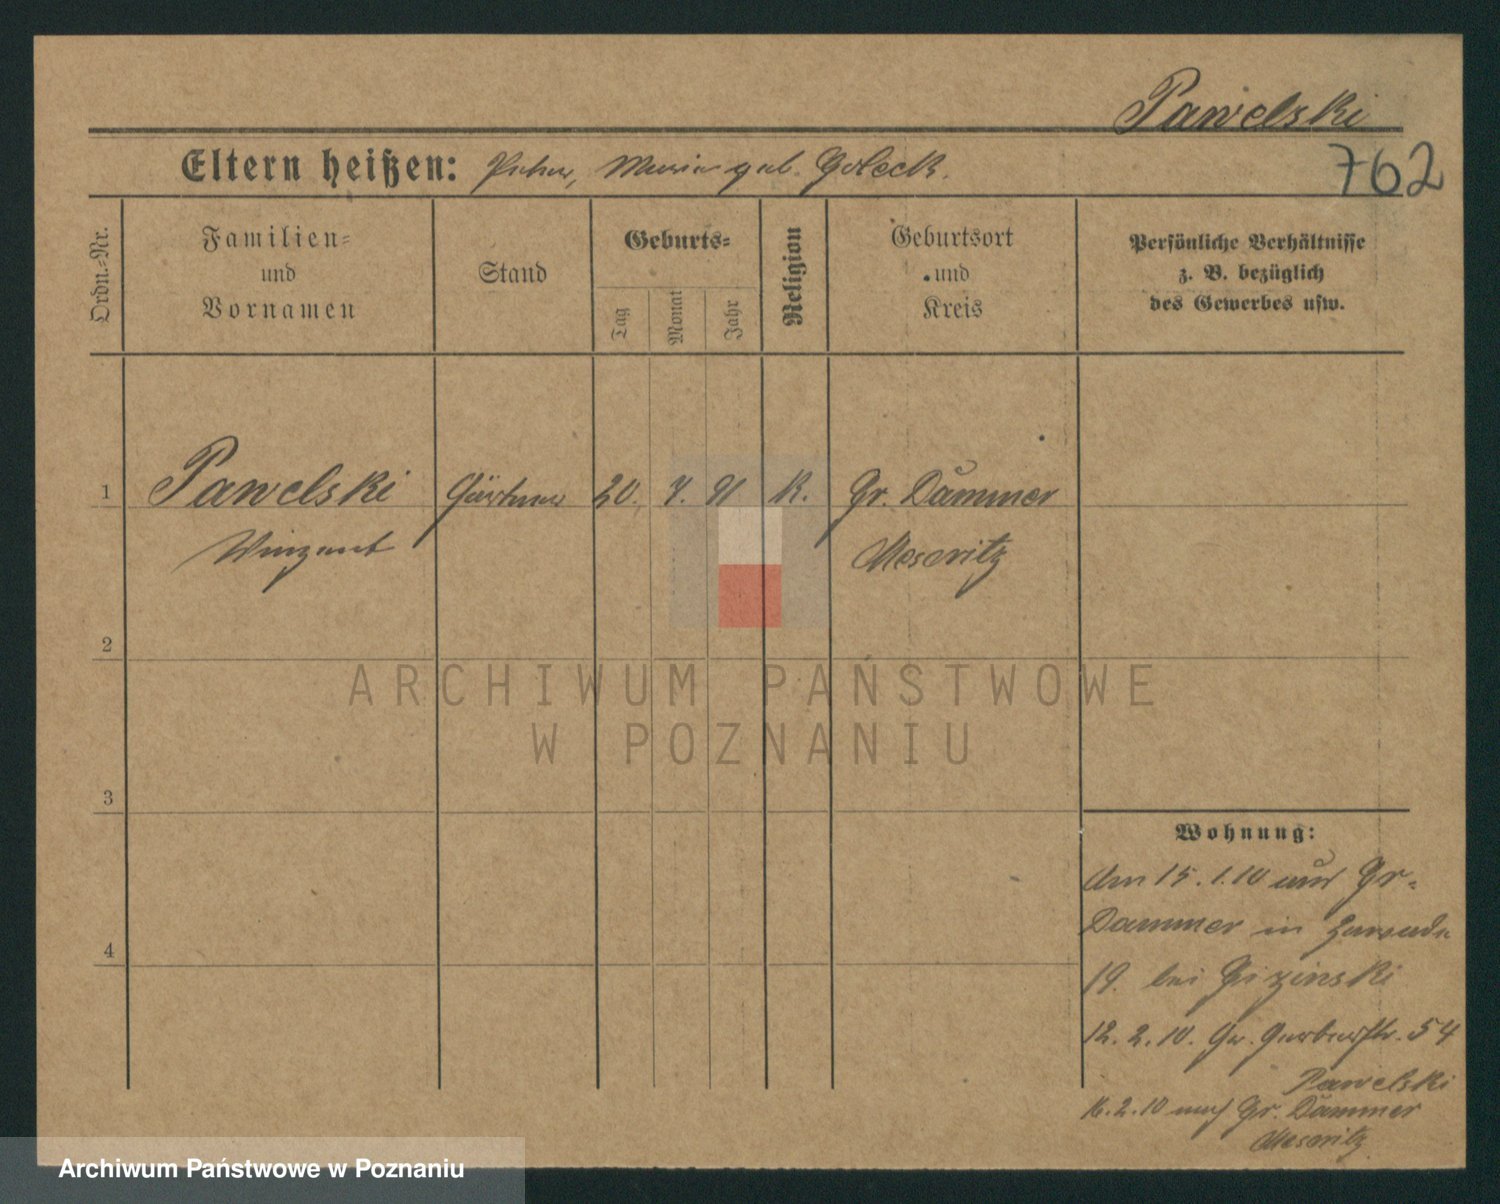 Pawelski
762
Eltern heißen: Peter, Maria geb. Goleck.
Ordn.-Nr.
Familien-
und
Vornamen
Stand
Geburts-
Tag
Monat
Jahr
Religion
Geburtsort
und
Kreis
Persönliche Verhältnisse
z. B. bezüglich
des Gewerbes usw.
1
Pawelski Gärtner 20. 7. 91 K. Gr. Dammer
Winzent Meseritz
2
3
4
Wohnung:
Am 15.1.10 aus Gr.-
Dammer in
19. bei
12.2.10. Gr. Gerberstr. 54
Pawelski
16.2.10 nach Gr. Dammer
Meseritz
ARCHIWUM PAŃSTWOWE
W POZNANIU
Archiwum Państwowe w Poznaniu